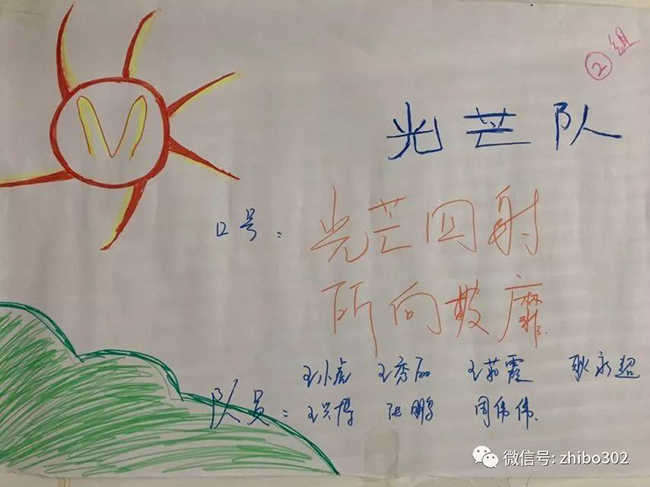 ②组
光芒队
口号：光芒四射
所向披靡
王小虎 王秀丽 王菊霞 耿永超
队员：王兴博 张鹏 周伟伟
微信号: zhibo302